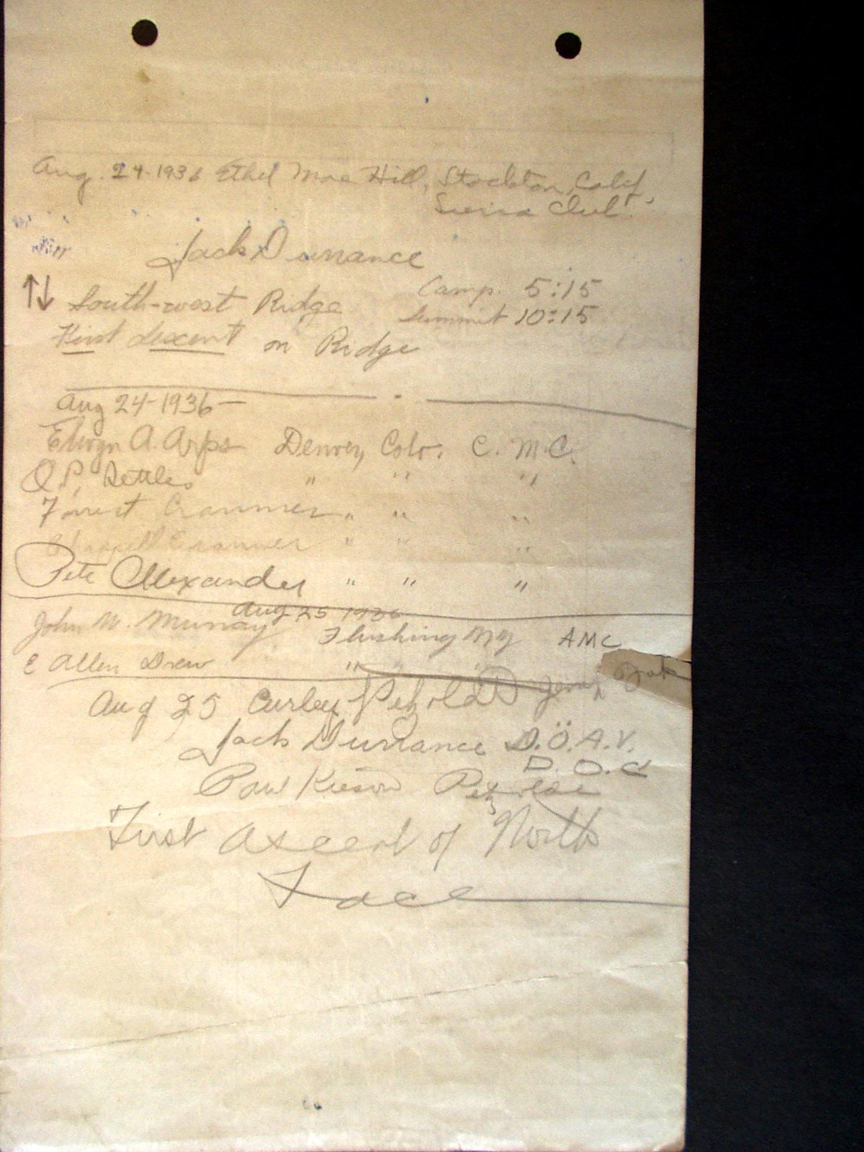 Aug. 24-1936 Ethel Mae Hill, Stockton, Calif.
Sierra Club.
Jack Durrance
↑↓ South-west Ridge Camp. 5:15
Summit 10:15
First descent on Ridge
Aug 24-1936-
Elwyn A. Arps Denver, Colo. C. M. C.
O.P. Settles " " "
Forrest Cranmer " " "
Chappell Cranmer " " "
Pete Alexander " " "
Aug 25 1936
John W. Murray Flushing NY AMC
E Allen Drew " "
Aug 25 Curley Petzoldt
Jack Durrance D.Ö.A.V.
D.O.C
Paul Petzoldt
First ascent of North
Face